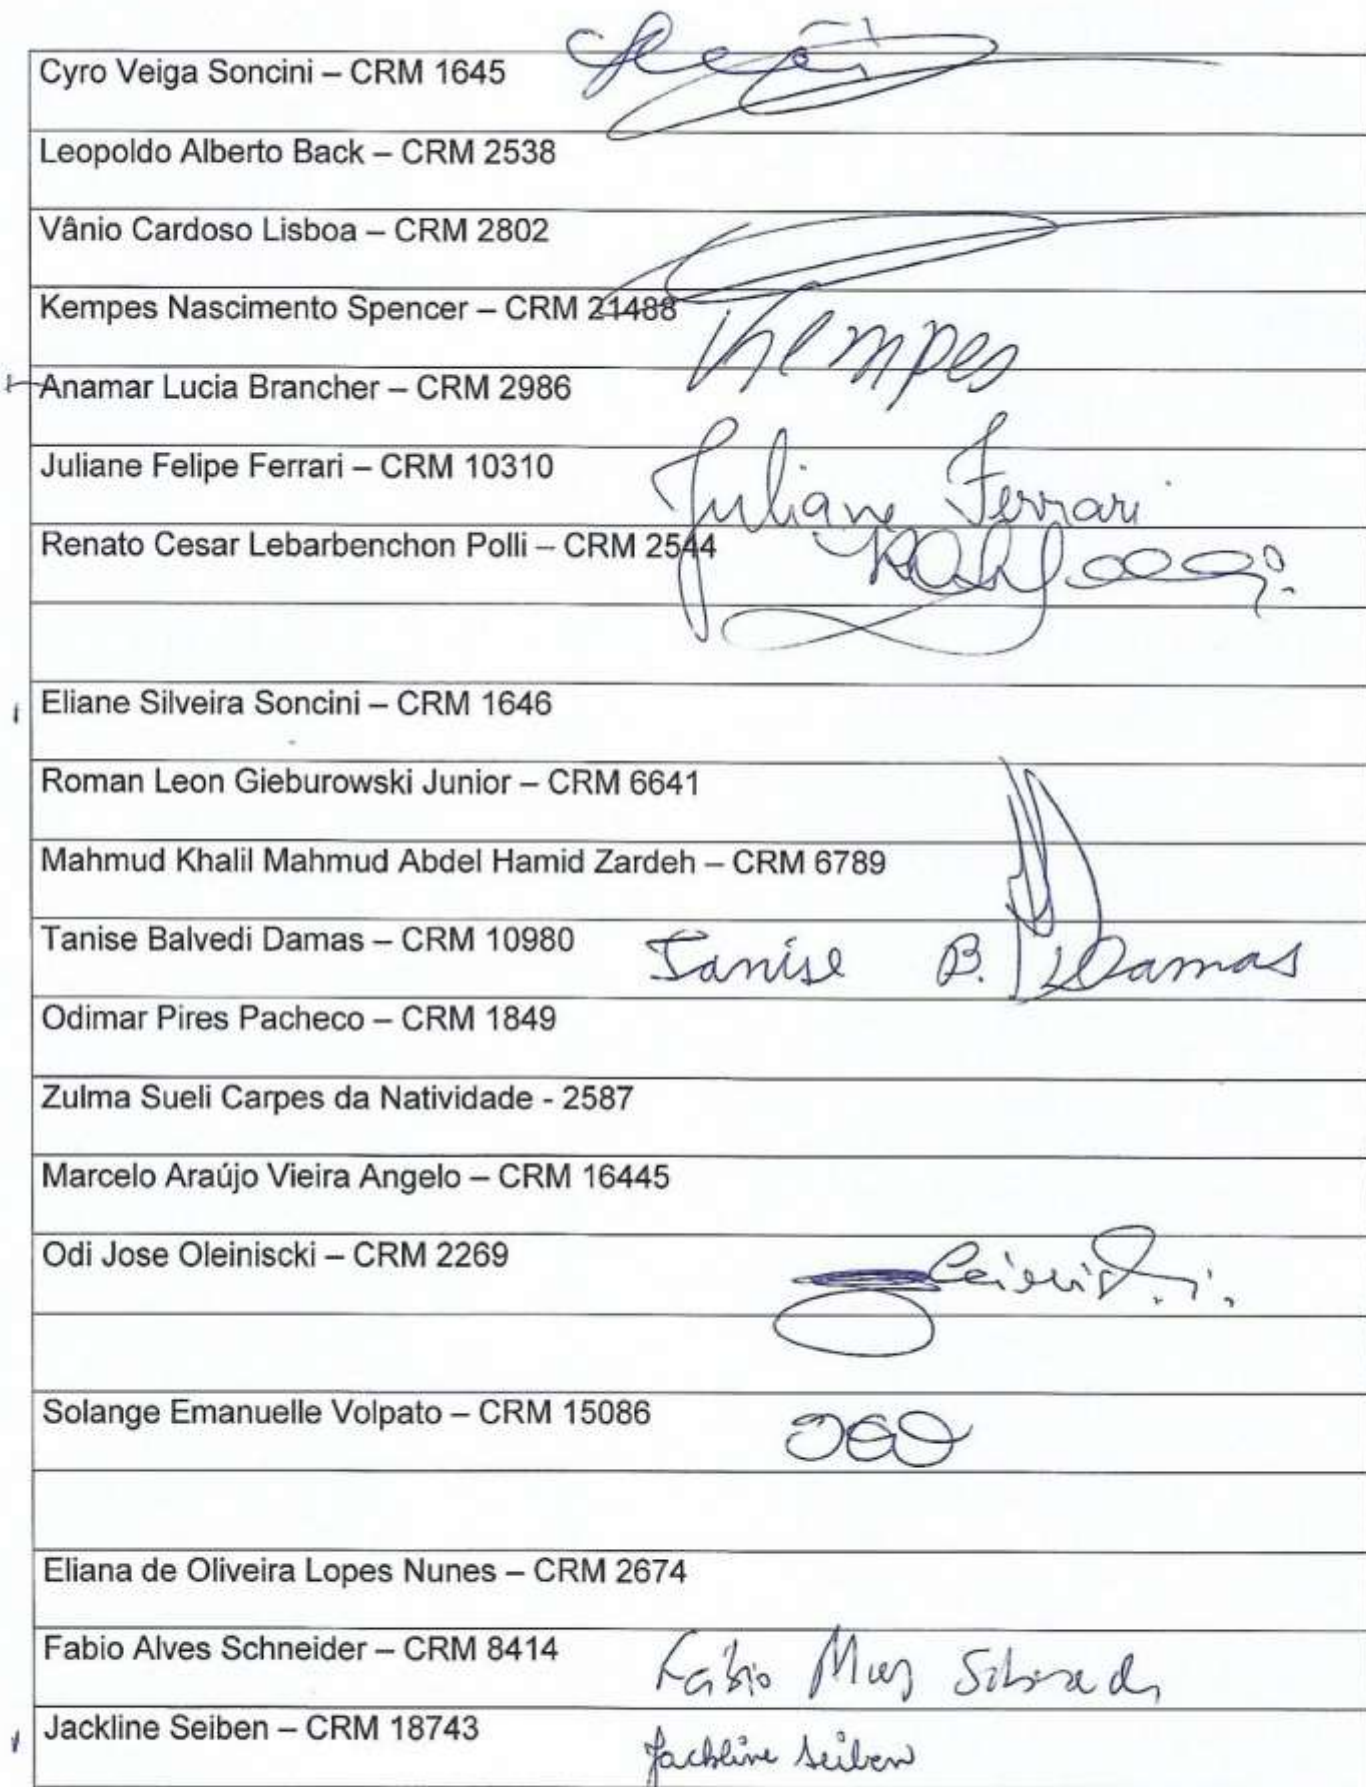 Cyro Veiga Soncini – CRM 1645
Leopoldo Alberto Back – CRM 2538
Vânio Cardoso Lisboa – CRM 2802
Kempes Nascimento Spencer – CRM 21488
Kempes
Anamar Lucia Brancher – CRM 2986
Juliane Felipe Ferrari – CRM 10310
Juliane Ferrari
Renato Cesar Lebarbenchon Polli – CRM 2544
Eliane Silveira Soncini – CRM 1646
Roman Leon Gieburowski Junior – CRM 6641
Mahmud Khalil Mahmud Abdel Hamid Zardeh – CRM 6789
Tanise Balvedi Damas – CRM 10980 Tanise B. Damas
Odimar Pires Pacheco – CRM 1849
Zulma Sueli Carpes da Natividade - 2587
Marcelo Araújo Vieira Angelo – CRM 16445
Odi Jose Oleiniscki – CRM 2269
Solange Emanuelle Volpato – CRM 15086
Eliana de Oliveira Lopes Nunes – CRM 2674
Fabio Alves Schneider – CRM 8414 Fábio
Jackline Seiben – CRM 18743 Jackline Seiben